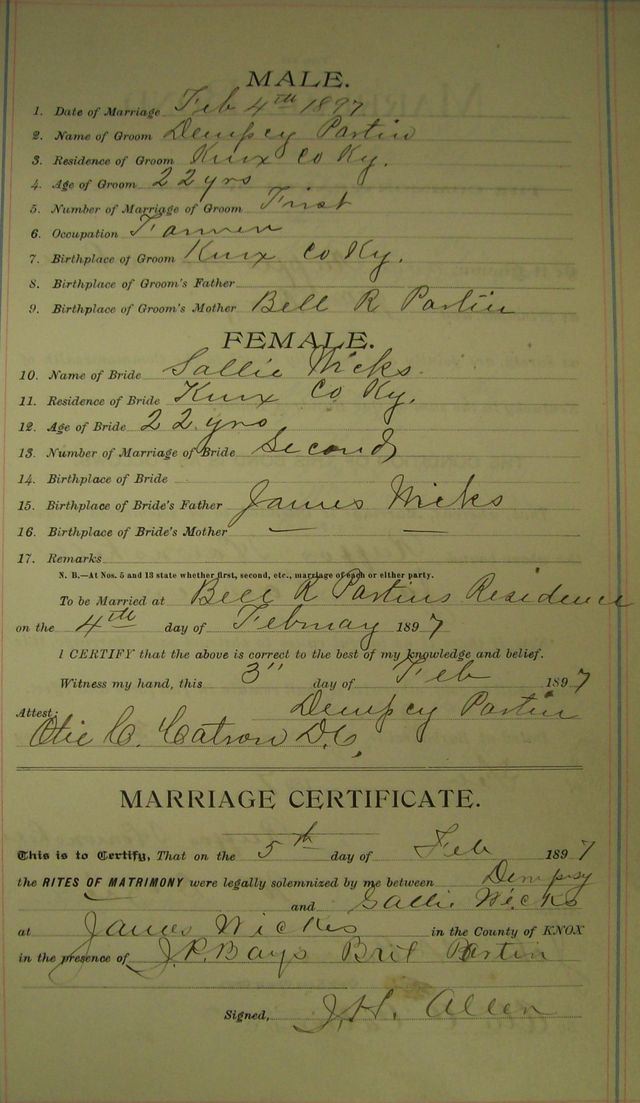 MALE.
1. Date of Marriage Feb 4th 1897
2. Name of Groom Dempsey Partin
3. Residence of Groom Knox Co Ky.
4. Age of Groom 22 yrs
5. Number of Marriage of Groom First
6. Occupation Farmer
7. Birthplace of Groom Knox Co Ky.
8. Birthplace of Groom's Father
9. Birthplace of Groom's Mother Bell R Partin
FEMALE.
10. Name of Bride Sallie Wicks.
11. Residence of Bride Knox Co Ky.
12. Age of Bride 22 yrs
13. Number of Marriage of Bride Second
14. Birthplace of Bride
15. Birthplace of Bride's Father James Wicks
16. Birthplace of Bride's Mother — —
17. Remarks
N. B.—At Nos. 5 and 13 state whether first, second, etc., marriage of each or either party.
To be Married at Bell R Partins Residence
on the 4th day of February 1897
I CERTIFY that the above is correct to the best of my knowledge and belief.
Witness my hand, this 3" day of Feb 1897
Dempcy Partin
Attest:
Otie C. Catron D.C.
MARRIAGE CERTIFICATE.
This is to Certify, That on the 5th day of Feb 1897
the RITES OF MATRIMONY were legally solemnized by me between Dempsy
and Sallie Wicks
at James Wickes in the County of KNOX
in the presence of J.R. Bays Brit Partin
Signed, J.H. Allen